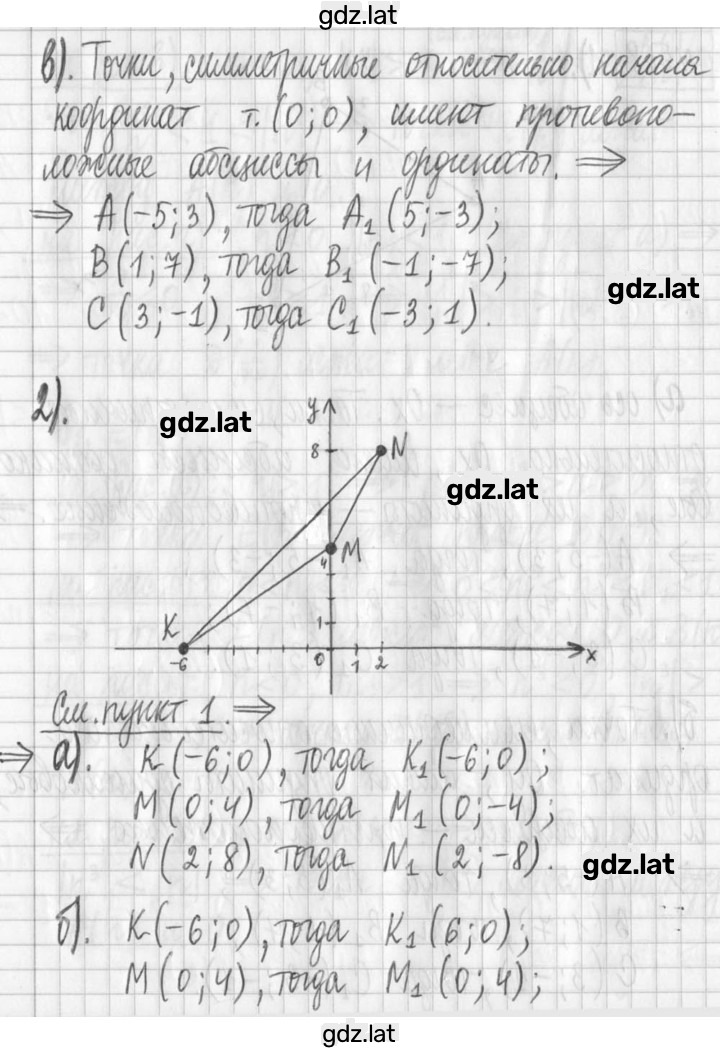 gdz.lat
в). Точки, симметричные относительно начала
координат т. (0; 0), имеют противопо-
ложные абсциссы и ординаты. ⇒
⇒ A(-5; 3), тогда A₁(5; -3);
B(1; 7), тогда B₁(-1; -7);
gdz.lat
C(3; -1), тогда C₁(-3; 1).
2).
gdz.lat
y
8 N
gdz.lat
4 M
K 1
-6 0 1 2 x
См. пункт 1. ⇒
⇒ а). K(-6; 0), тогда K₁(-6; 0);
M(0; 4), тогда M₁(0; -4);
N(2; 8), тогда N₁(2; -8).
gdz.lat
б). K(-6; 0), тогда K₁(6; 0);
M(0; 4), тогда M₁(0; 4);
gdz.lat